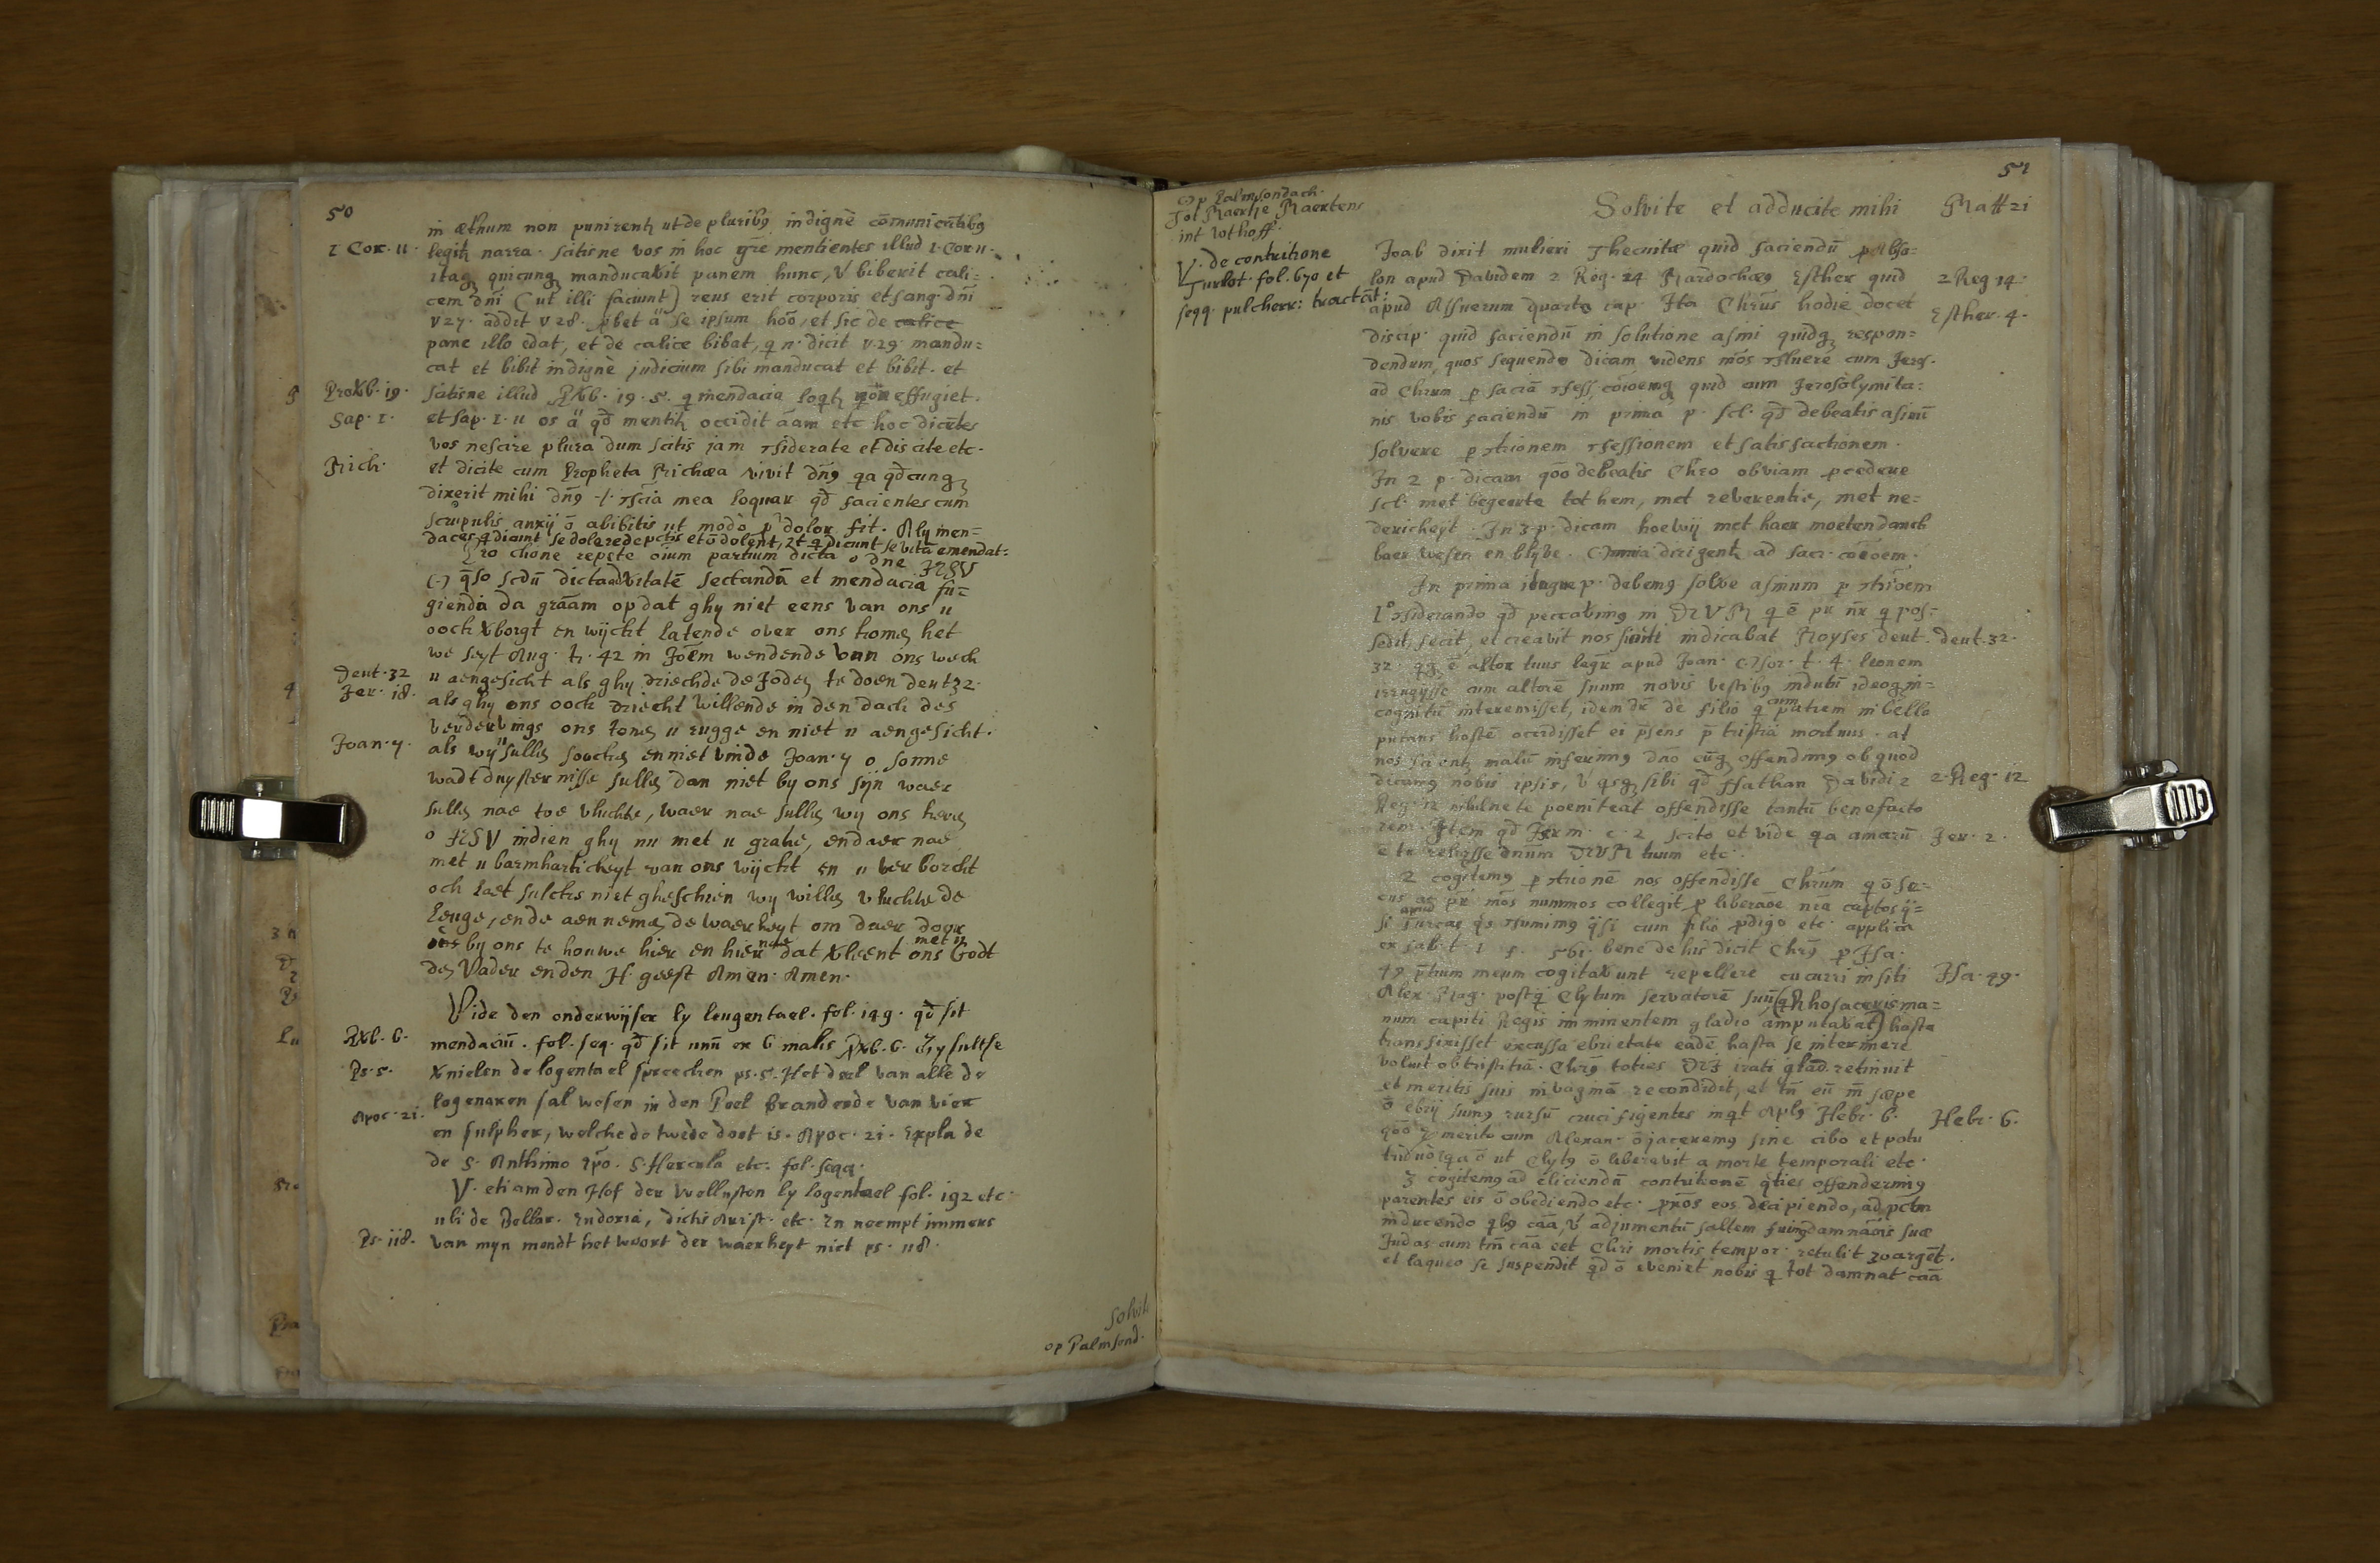 50
in æthnum non punirentʒ ut de pluribꝰ indignè cōmunicātibꝰ
1 Cor. 11. legitʒ narra. scitisne vos in hoc mentientes illud 1. Cor 11.
itaqʒ quicunqʒ manducabit panem hunc, V biberit cali=
cem dnī (ut illi faciunt) reus erit corporis et sang. dnī
v 27. addit v 28. ꝓbet ä se ipsum hoō, et sic de calice
pane illo edat, et de calice bibat, q n. dicit v. 29. mandu=
cat et bibit indignè judicium sibi manducat et bibit. et
Proverb. 19. scitisne illud Prob. 19. 5. q mendacia loqtʒ effugiet.
Sap. 1. et Sap. 1. 11 os ä qd̄ mentitʒ occidit āam etc hoc dicētes
vos nescire plura dum scitis jam ꝯsiderate et discite etc.
Mich. et dicite cum Propheta Michæa vivit dn̄ꝰ qa qd̄cunqʒ
dixerit mihi dn̄ꝰ .i. ꝯsciā mea loquar qd̄ facientes cum
scrupulis anxij ō abibitis ut modò dolor fit. Aly men=
daces q dicunt se dolere de pctis et ō dolent, et q dicunt se vitā emendat:
Pro chone repete oīum partium dicta o dne JESV
q̄so scdū dicta ad veritatē sectandā et mendacia fu=
gienda da grāam opdat ghy niet eens van ons u
ooch verborgt en wijcht latende over ons komē het
we seyt Aug. tr. 42 in Joēm wendende van ons wech
Deut. 32 u aengesicht als ghy driechde de Jodē te doen deut 32.
Jer. 18. als ghy ons ooch driecht willende in den dach des
verdervings ons tonē u rugge en niet u aengesicht.
Joan. 7. als wy u sullē soechē en niet vinde Joan. 7 o sonne
wadt duysternisse sullē dan niet by ons sijn waer
sullē nae toe vluchte, waer nae sullē wy ons keerē
o JESV indien ghy nu met u gratie, en daer nae
met u barmharticheyt van ons wijcht en u verborcht
och laet sulcks niet gheschien wy willē vluchte de
leuge, ende aennemē de waerheyt om daer door
by ons te houwe hier en hier nae dat verleent ons Godt
met u
dē Vader en den H. geest Amen. Amen.
Vide den onderwijser ly leugentael. fol. 149. qd̄ sit
Prob. 6. mendaciū. fol. seq. qd̄ sit unū ex 6 malis Prob. 6. Gy sult se
Ps. 5. vernielen de logentael spreechen ps. 5. Het deel van alle de
logenaren sal wesen in den Poel brandende van vier
Apoc. 21. en sulpher, welche de twede doot is. Apoc. 21. Expla de
de S. Anthimo Epō. S. Hercula etc. fol. seqq.
V. etiam den Hof der Wellusten ly logentael fol. 192 etc.
ubi de Bellar. Eudoxia, dictis Arist. etc. En neempt immers
Ps. 118. van myn mondt het woort der waerheyt niet ps. 118.
Solvite
op Palmsond.
51
op Palmsondach.
Tot Maertje Maertens
int Hothoff.
V. de contritione
Turlot. fol. 670 et
seqq. pulcherr: tractāt:
Solvite et adducite mihi Matt 21
Joab dixit mulieri Thecuitæ quid faciendū pro Abso=
lon apud Davidem 2 Reg. 14 Mardochæꝰ Esther quid 2 Reg 14.
apud Assuerum quarto cap. Ita Chrūs hodie docet Esther. 4.
discip. quid faciendū in solutione asini quidqʒ respon=
dendum, quos sequendo dicam videns mōs ꝯfluere cum Jeros.
ad Chrum p sacrā ꝯfess. cōioemqʒ quid cum Jerosolymita=
nis vobis faciendū in prima p. scl. qd̄ debeatis asinū
solvere p ꝯtrionem ꝯfessionem et satisfactionem.
In 2 p. dicam qōo debeatis Chro obviam ꝓcedere
scl. met begeerte tot hem, met reverentie, met ne=
dericheyt. In 3 p. dicam hoe wij met haer moeten danck
baer wesen en blijve. Omnia dirigentʒ ad sacr. cōioem.
In prima itaque p. debemꝰ solve asinum p ꝯtriōem
1º ꝯsiderando qd̄ peccavimꝰ in DEVM q ē pr nr̄ q pos=
sedit, fecit, et creavit nos sicuti indicabat Moyses deut. Deut. 32.
32. qʒ ē altor tuus legr̄ apud Joan. t. 4. leonem
irrugijsse cum altorē suum novis vestibꝰ indutū ideoqʒ in=
cognitū interemisset, idem dr̄ de filio q cum patrem in bello
putans hostē occidisset ei p̄sens p̄ tristiā mortuus. at
nos malū inferimꝰ dn̄o cūqʒ offendimꝰ ob quod
dicamꝰ nobis ipsis, V qsqʒ sibi qd̄ Nathan Davidi 2 2. Reg. 12
Reg. 12 nihilne te poeniteat offendisse tantū benefacto
rem. Item qd̄ Jerem. c. 2 scito et vide qa amarū Jer. 2.
ē te reliqsse dnūm DEVM tuum etc.
2 cogitemꝰ p ꝯtrionē nos offendisse Chrūm q ō se=
cus ac pr mōs nummos collegit p liberaōe nr̄a captos q=
si apud Turcas qs ꝯsumimꝰ qsi cum filio ꝓdigo etc. applica
bene de his dicit Chrꝰ p Isa.
49 p̄tium meum cogitabunt repellere cucurri in siti Isa. 49.
Alex. Mag. postq̄ Clytum servatorē suū (q Rhosaceris ma=
num capiti Regis imminentem gladio amputabat) hasta
transfixisset excussa ebrietate eadē hasta se interimere
voluit ob tristitiā. Chrꝰ toties DEI irati glad. retinuit
et meritis suis in vaginā recondidit, et tn̄ eū in sæpe
ō ebrij sumꝰ rursū crucifigentes inqt Aplꝰ Hebr. 6. Hebr. 6.
qōo merito cum Alexan. ō jaceremꝰ sine cibo et potu
triduo qa ō ut Clytꝰ ō liberavit a morte temporali etc.
3 cogitemꝰ ad eliciendū contritionē qties offenderimꝰ
parentes eis ō obediendo etc. prōs eos decipiendo, ad pctm
inducendo qbꝰ cāā, V adjumentū saltem fuimꝰ damnāōis suæ
Judas cum tm̄ cāā eet Chri mortis tempor. retulit 30 argēt.
et laqueo se suspendit qd̄ ō eveniet nobis q tot damnat cāā